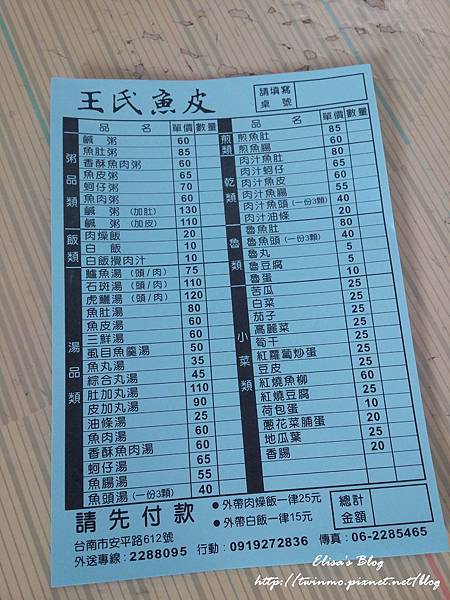 王氏魚皮
請填寫
桌 號
品 名 單價 數量
粥品類
鹹 粥 60
魚肚粥 85
香酥魚肉粥 60
魚皮粥 65
蚵仔粥 70
魚肉粥 60
鹹 粥 (加肚) 130
鹹 粥 (加皮) 110
飯類
肉燥飯 20
白 飯 10
白飯攪肉汁 10
湯品類
鱸魚湯 (頭/肉) 75
石斑湯 (頭/肉) 110
虎鱺湯 (頭/肉) 120
魚肚湯 80
魚皮湯 60
三鮮湯 60
虱目魚羹湯 50
魚丸湯 35
綜合丸湯 45
肚加丸湯 110
皮加丸湯 90
油條湯 25
魚肉湯 60
香酥魚肉湯 60
蚵仔湯 65
魚腸湯 55
魚頭湯 (一份3顆) 40
品 名 單價 數量
煎類
煎魚肚 85
煎魚腸 60
乾類
肉汁魚肚 80
肉汁蚵仔 65
肉汁魚皮 60
肉汁魚腸 55
肉汁魚頭 (一份3顆) 40
肉汁油條 20
魯類
魯魚肚 80
魯魚頭 (一份3顆) 40
魯丸 5
魯豆腐 5
魯蛋 10
小菜類
苦瓜 25
白菜 25
茄子 25
高麗菜 25
筍干 25
紅蘿蔔炒蛋 25
豆皮 25
紅燒魚柳 60
紅燒豆腐 25
荷包蛋 10
蔥花菜脯蛋 25
地瓜葉 25
香腸 20
請先付款
●外帶肉燥飯一律25元
●外帶白飯一律15元
總計
金額
台南市安平路612號
外送專線:2288095 行動:0919272836 傳真:06-2285465
Elisa's Blog
http://twinmo.pixnet.net/blog